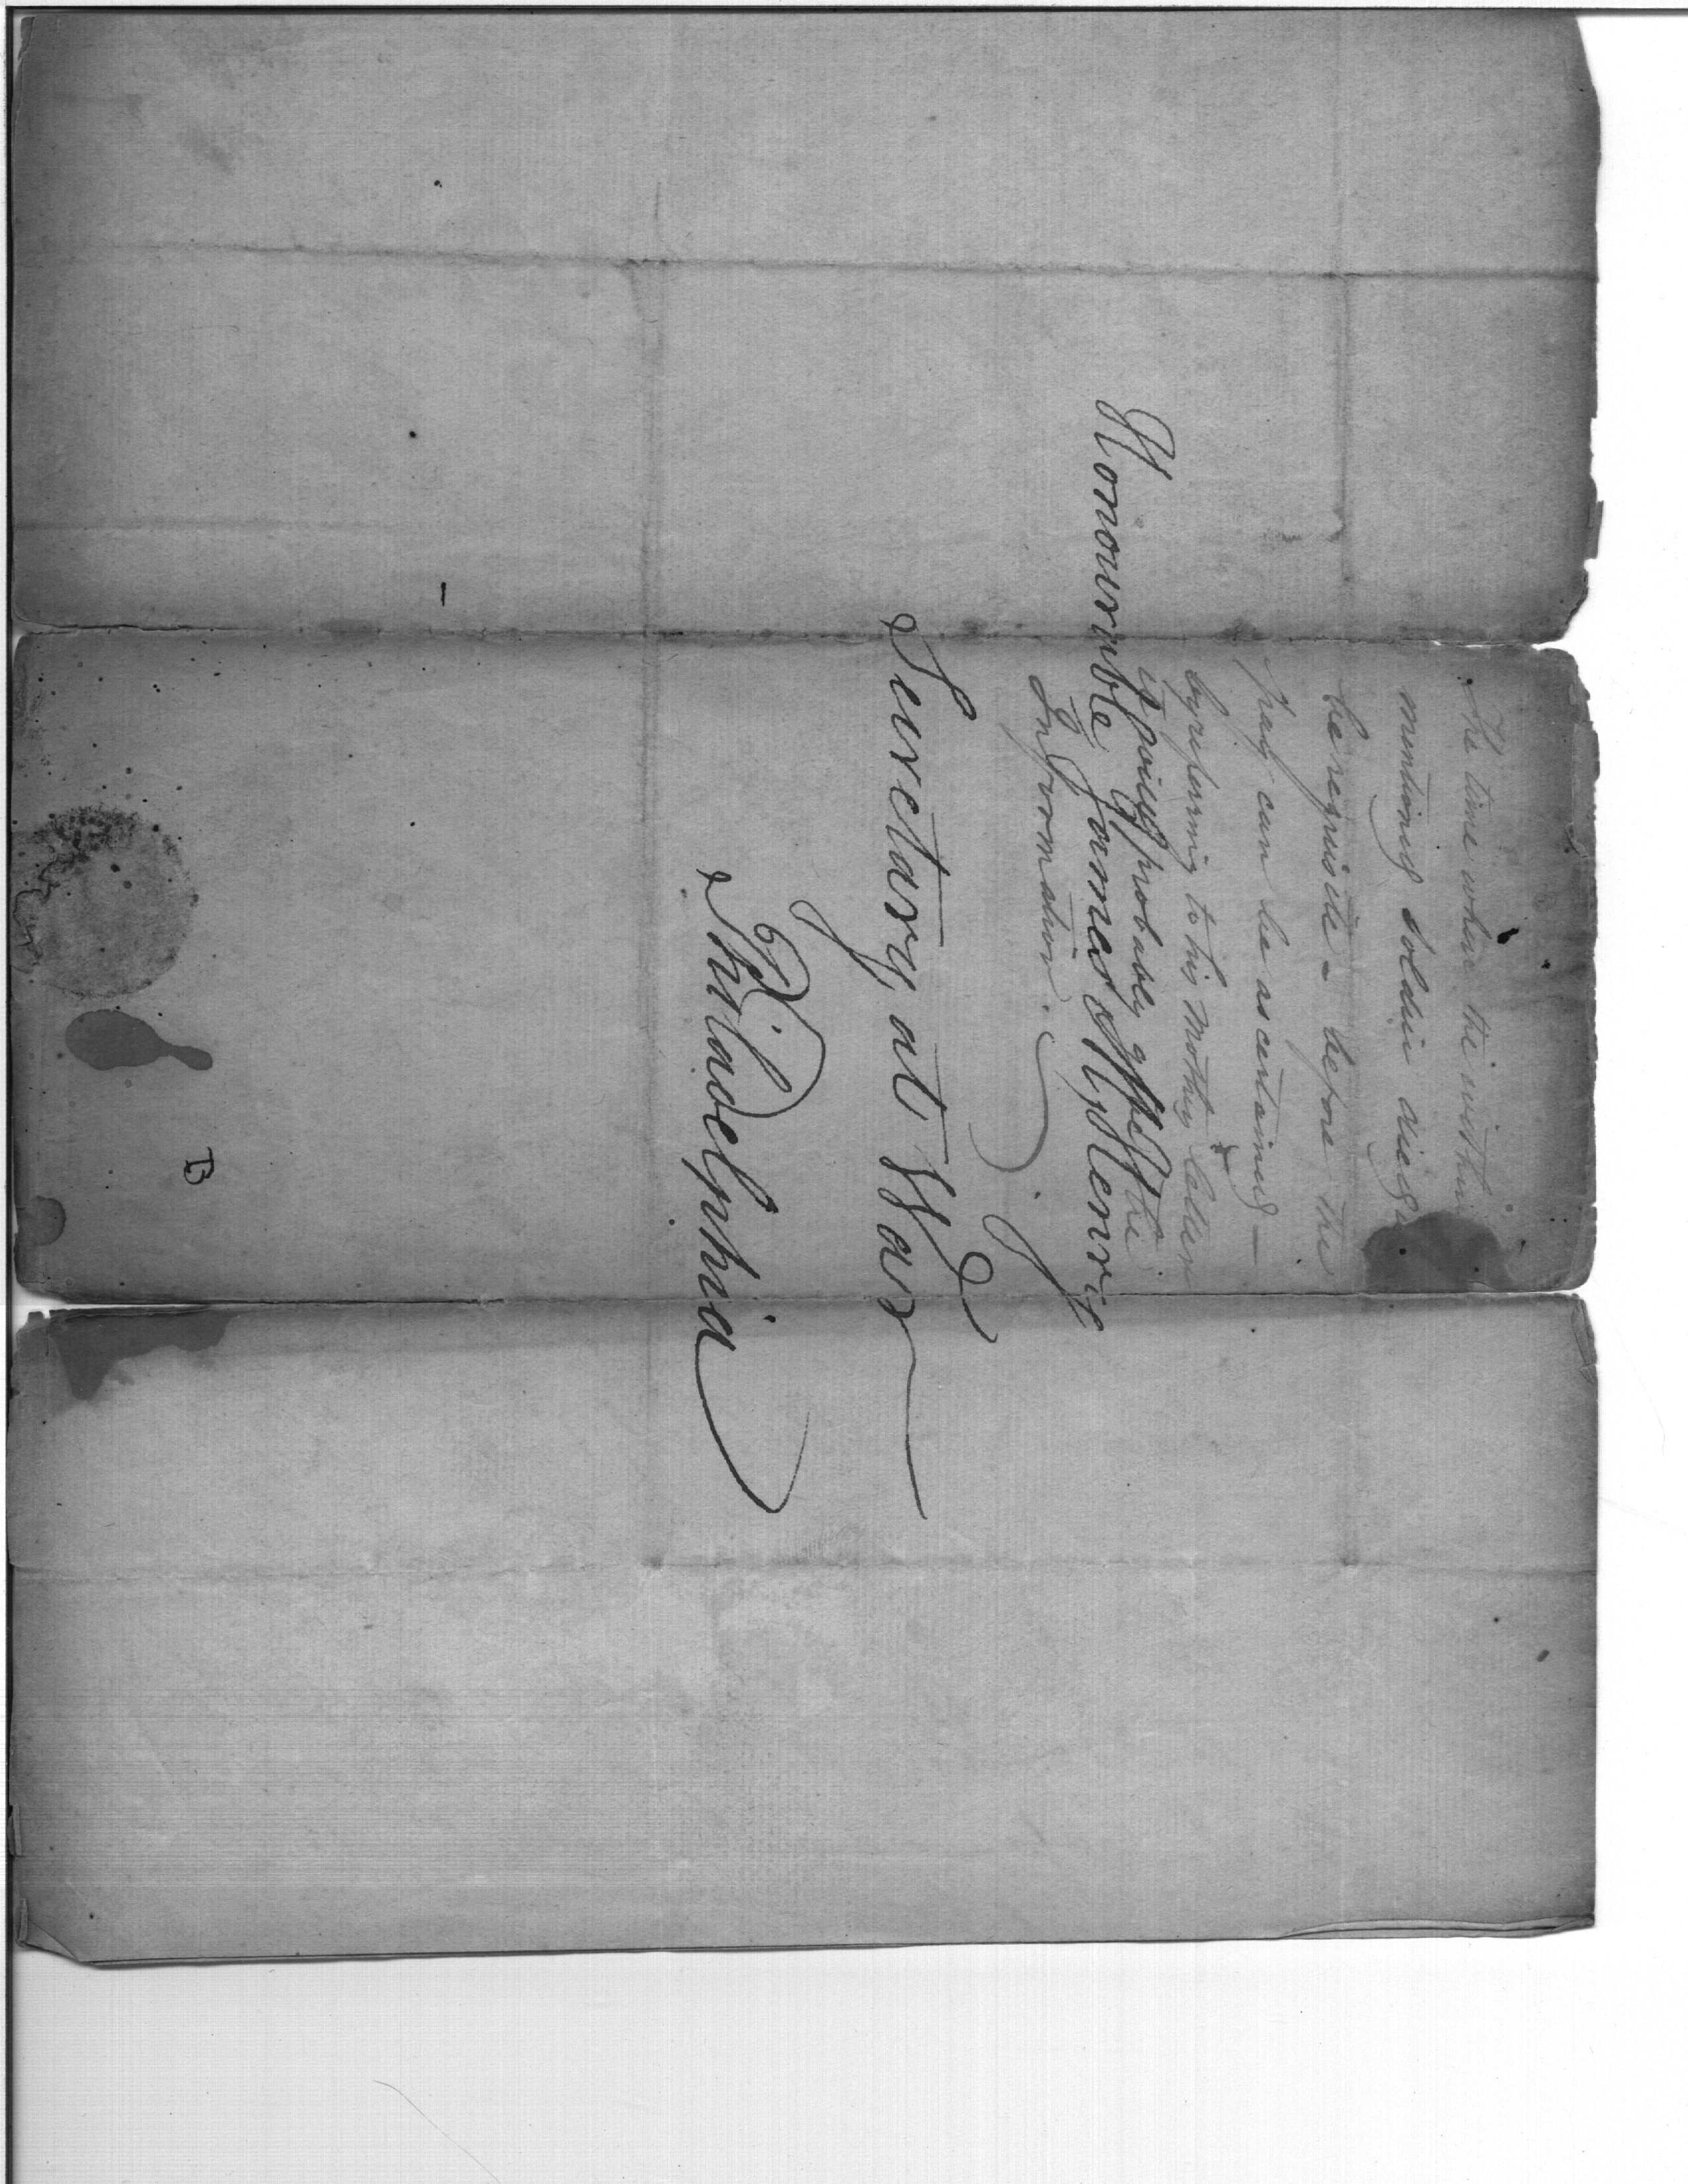 The time when the within
mentioned soldier died
be requisite - before the
pay can be ascertained —
by referring to his Mothers letter
it will probably give the
Information.
Honourable James McHenry
Secretary at War
Philadelphia
B